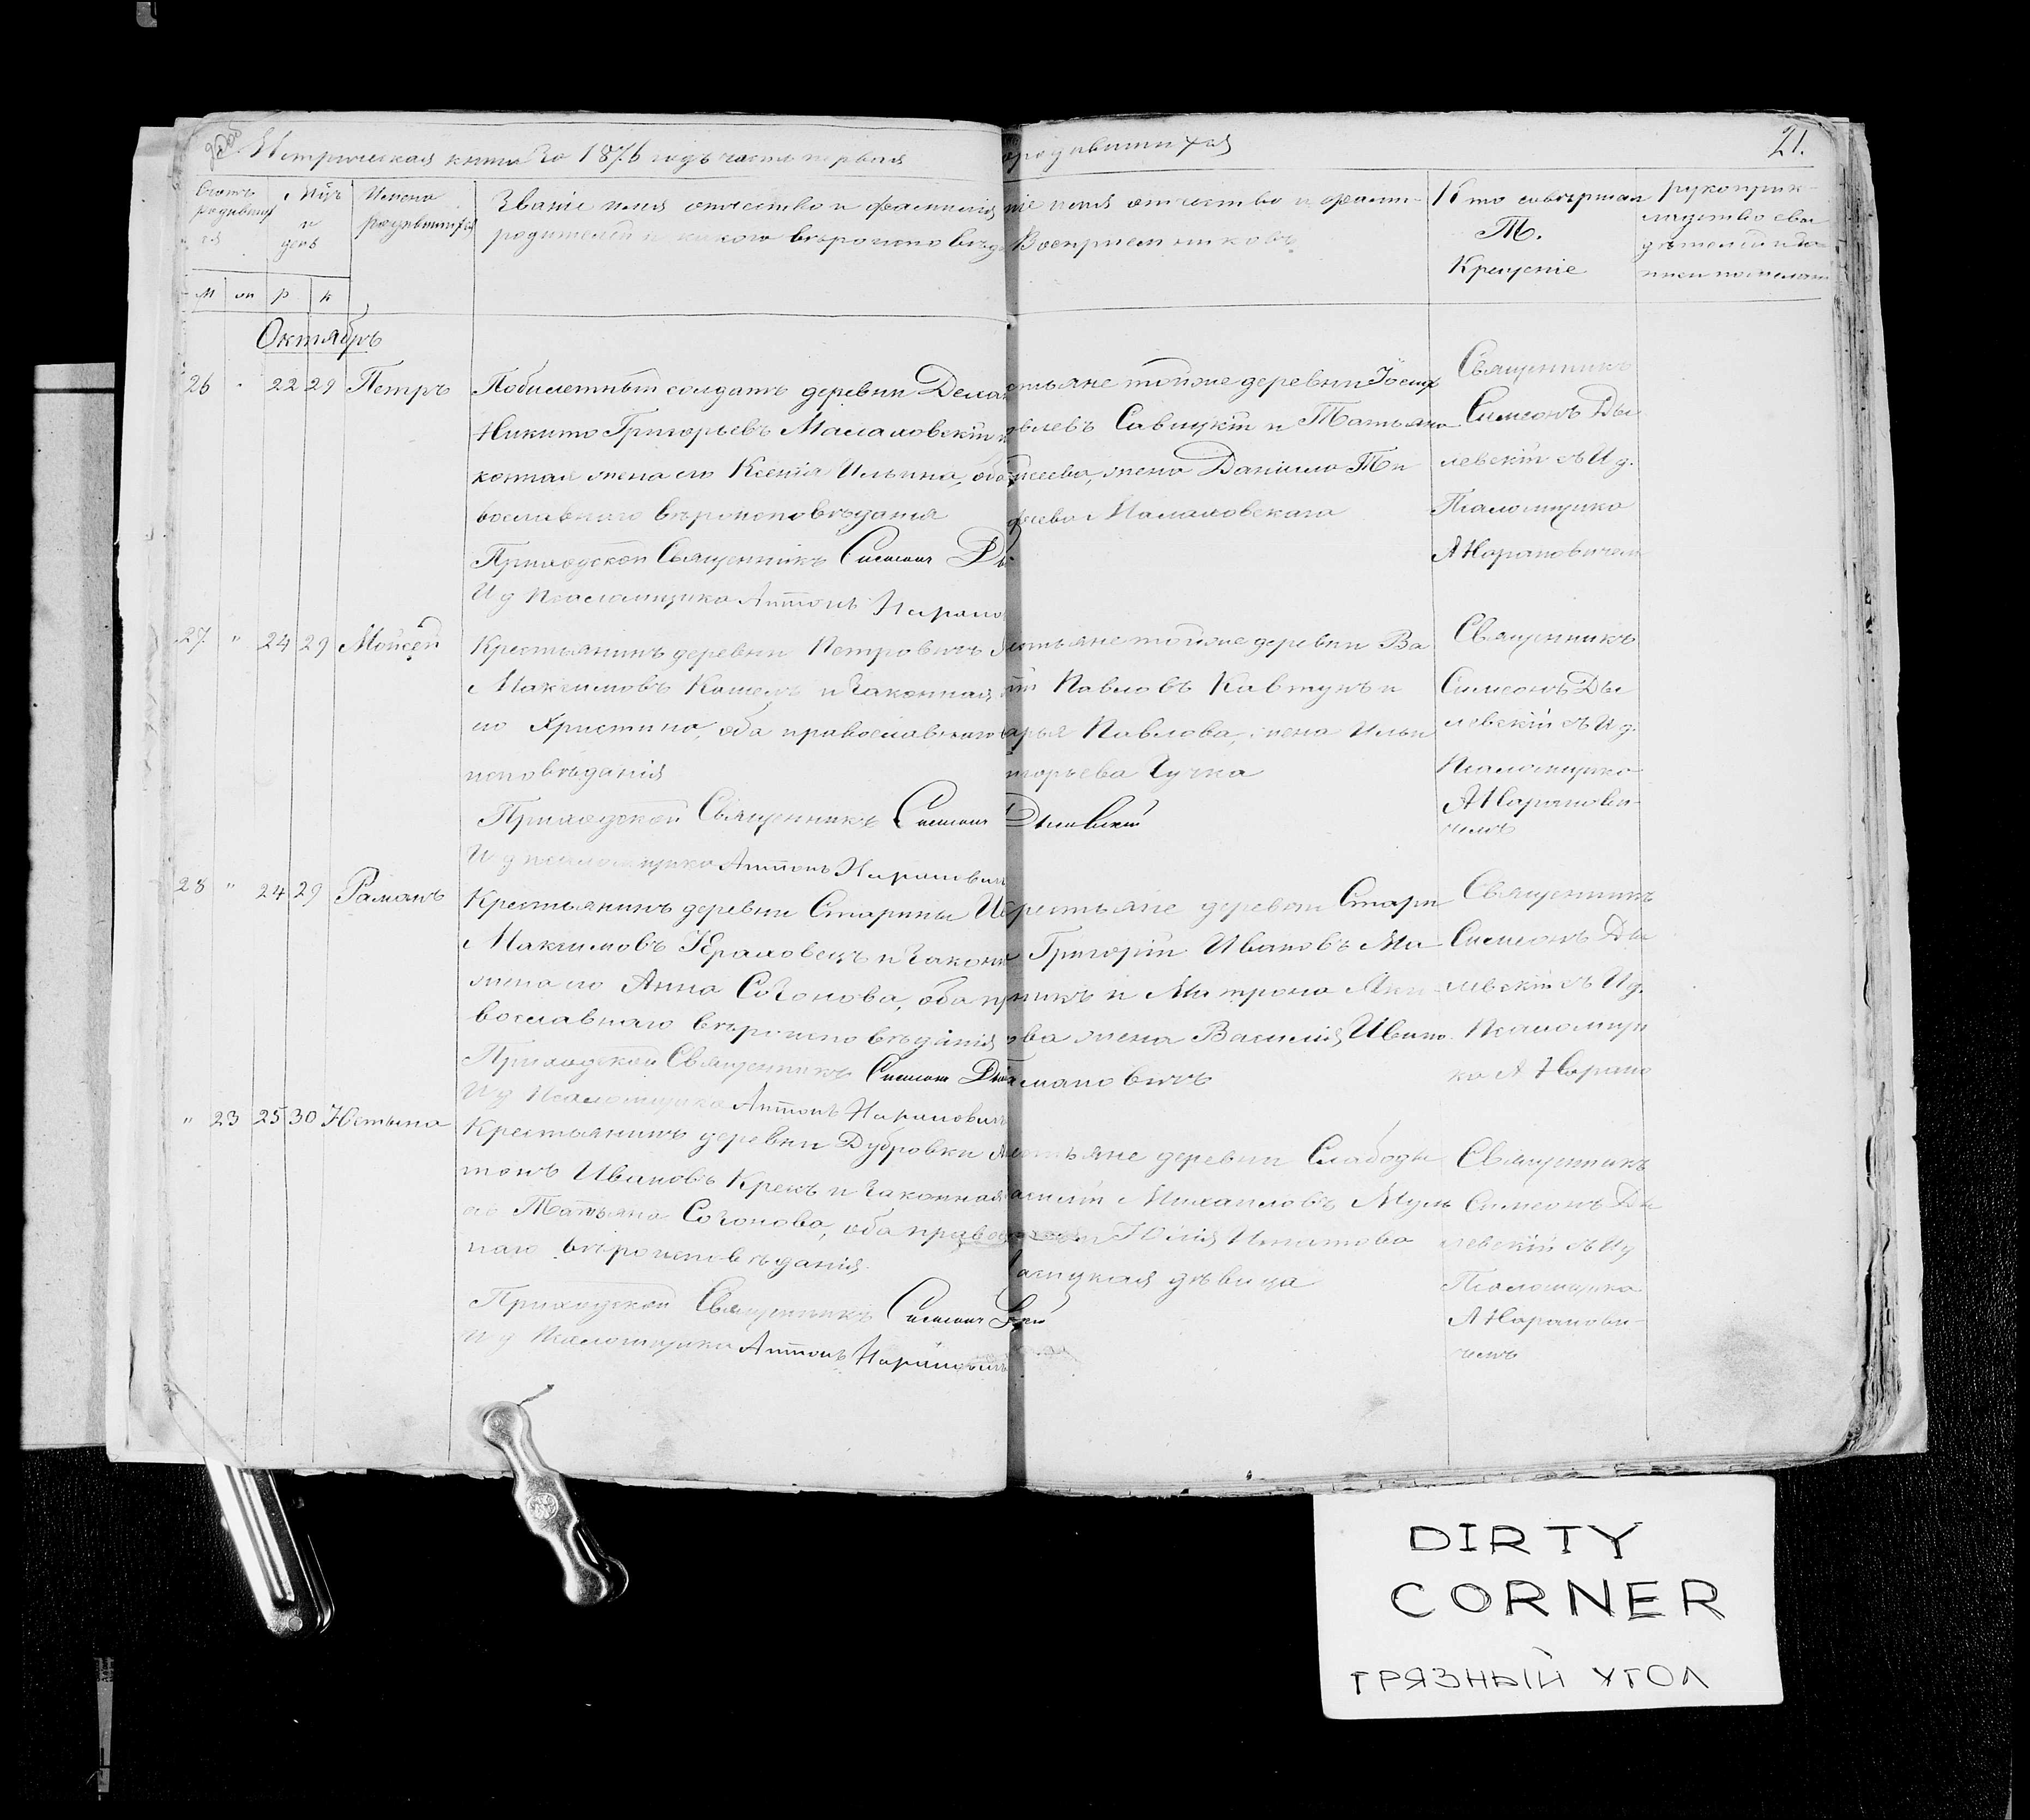 Метрическая книга за 1876 годъ часть первая
о родившихся
21.
Счетъ родивших
ся
Мцъ
и
день
Имена
родившихся
Званіе имя отчество и фамилія
родителей и какого вѣроисповѣд
ніе имя отчество и фами-
Воспріемниковъ
Кто совершал
Т.
Крещеніе
рукоприк-
ладство сви
дѣтелей
М
ж
р
к
Октябрь
26 " 22 29 Петръ
Побилетный солдатъ деревни
Никита Григорьевъ Малаховскій и
конная жена его Ксенія Ильина, оба
вославнаго вѣроисповѣданія
Приходской Священникъ Симеонъ Ды
И д Псаломщика Антонъ Нарано
стьяне тойже деревни Іосиф
Савицкій и Татьяна
жена Даніила Ти
Малаховскаго
Священникъ
Симеонъ Ды
левскій съ И д.
Псаломщика
А Нарановичем
27 " 24 29 Моисей
Крестьянинъ деревни Петровичъ
Максимовъ Кошель и законная
го Христина, оба православнаго
исповѣданія
Приходской Священникъ Симеонъ Дылевскій
И д псаломщика Антонъ Наранович
стьяне тойже деревни Ва
ій Павловъ Кавтунъ и
арья Павлова, жена Ильи
горьева Гучка
Священникъ
Симеонъ Ды
левскій съ И д.
Псаломщика
А Наранови-
чемъ
28 " 24 29 Раманъ
Крестьянинъ деревни Старины Ив
Максимовъ и законн
жена его Анна Созонова, оба пр
вославнаго вѣроисповѣданія
Приходской Священникъ Симеонъ Ды
И д Псаломщика Антонъ Наранович
рестьяне деревни Стари
Григорій Ивановъ Ма
никъ и Матрона
ова жена Василія Ивано
мановичъ
Священникъ
Симеонъ Ды
левскій съ И д.
Псаломщи
ка А Нарано
" 23 25 30 Юстына
Крестьянинъ деревни Дубровки А
тонъ Ивановъ Крекъ и законная
го Татьяна Созонова, оба правос
наго вѣроисповѣданія.
Приходской Священникъ Симеонъ
И д Псаломщика Антонъ Наранович
стьяне деревни Слабоды
асилій Михаиловъ Муль
Юлія Игнатова
дѣвица
Священникъ
Симеонъ Ды
левскій съ И д
Псаломщика
А Наранови-
чемъ
DIRTY
CORNER
ГРЯЗНЫЙ УГОЛ